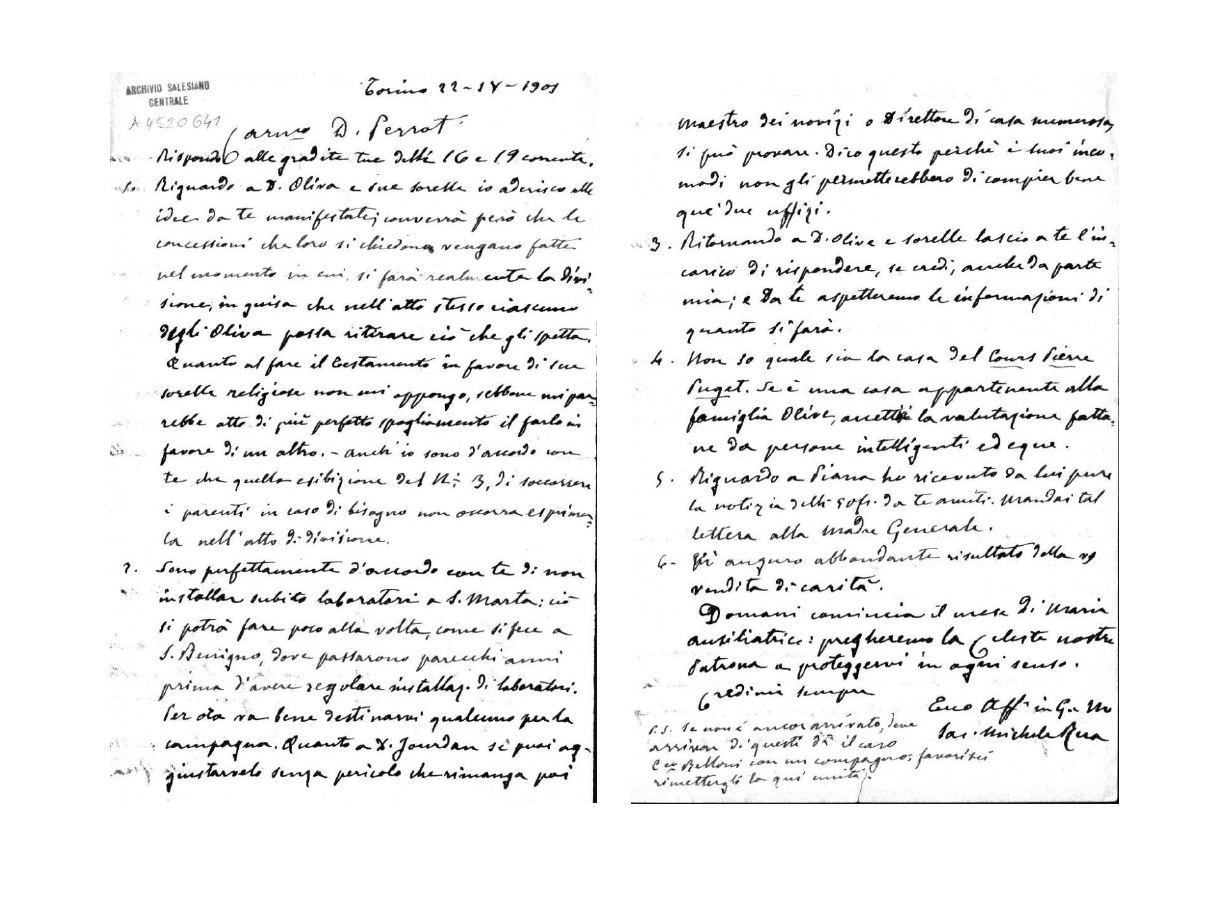 ARCHIVIO SALESIANO
CENTRALE
A4520641
Torino 22-IV-1901
Carmo D. Perrot
Rispondo alle gradite tue delli 16 e 19 corrente.
1. Riguardo a D. Oliva e sue sorelle io aderisco alle
idee da te manifestate; converrà però che le
concessioni che loro si chiedono vengano fatte
nel momento in cui si farà realmente la divi-
sione, in guisa che nell'atto stesso ciascuno
degli Oliva possa ritirare ciò che gli spetta.
Quanto al fare il testamento in favore di sue
sorelle religiose non mi oppongo, sebbene mi par-
rebbe atto di più perfetto spogliamento il farlo in
favore di un altro. - anch'io sono d'accordo con
te che quella esibizione del N. 3, di soccorrere
i parenti in caso di bisogno non occorra esprimer-
la nell'atto di divisione.
2. Sono perfettamente d'accordo con te di non
installar subito laboratori a S. Marta: ciò
si potrà fare poco alla volta, come si fece a
S. Benigno, dove passarono parecchi anni
prima d'avere regolare installaz. di laboratori.
Per ora va bene destinarvi qualcuno per la
campagna. Quanto a D. Jourdan se puoi ag-
giustarvelo senza pericolo che rimanga poi
maestro dei novizi o Direttore di casa numerosa,
si può provare. Dico questo perchè i suoi inco-
modi non gli permetterebbero di compier bene
que' due uffizi.
3. Ritornando a D. Olive e sorelle lascio a te l'in-
carico di rispondere, se credi, anche da parte
mia; e da te aspetteremo le informazioni di
quanto si farà.
4. Non so quale sia la casa del Cours Pierre
Puget. Se è una casa appartenente alla
famiglia Olive, accetto la valutazione fatta-
ne da persone intelligenti ed eque.
5. Riguardo a Piana ho ricevuto da lui pure
la notizia delli 50 fr. da te avuti. Mandai tal
lettera alla Madre Generale.
6- Vi auguro abbondante risultato della
vendita di carità.
Domani comincia il mese di Maria
ausiliatrice: pregheremo la Celeste nostra
Patrona a proteggervi in ogni senso.
Credimi sempre
Tuo Aff in G. e M
Sac. Michele Rua
P.S. Se non è ancor arrivato, deve
arrivar di questi dì il caro
Belloni con un compagno; favorisci
rimettergli la qui unita.